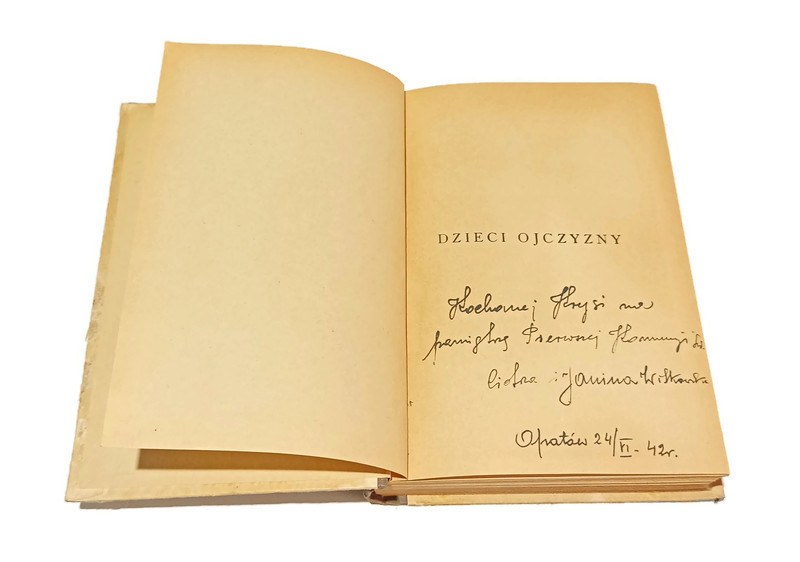 DZIECI OJCZYZNY
Kochanej Krysi na
pamiątkę Pierwszej Komunji Św.
ciotka i Janina Witkowska
Opatów 24/VI - 42r.